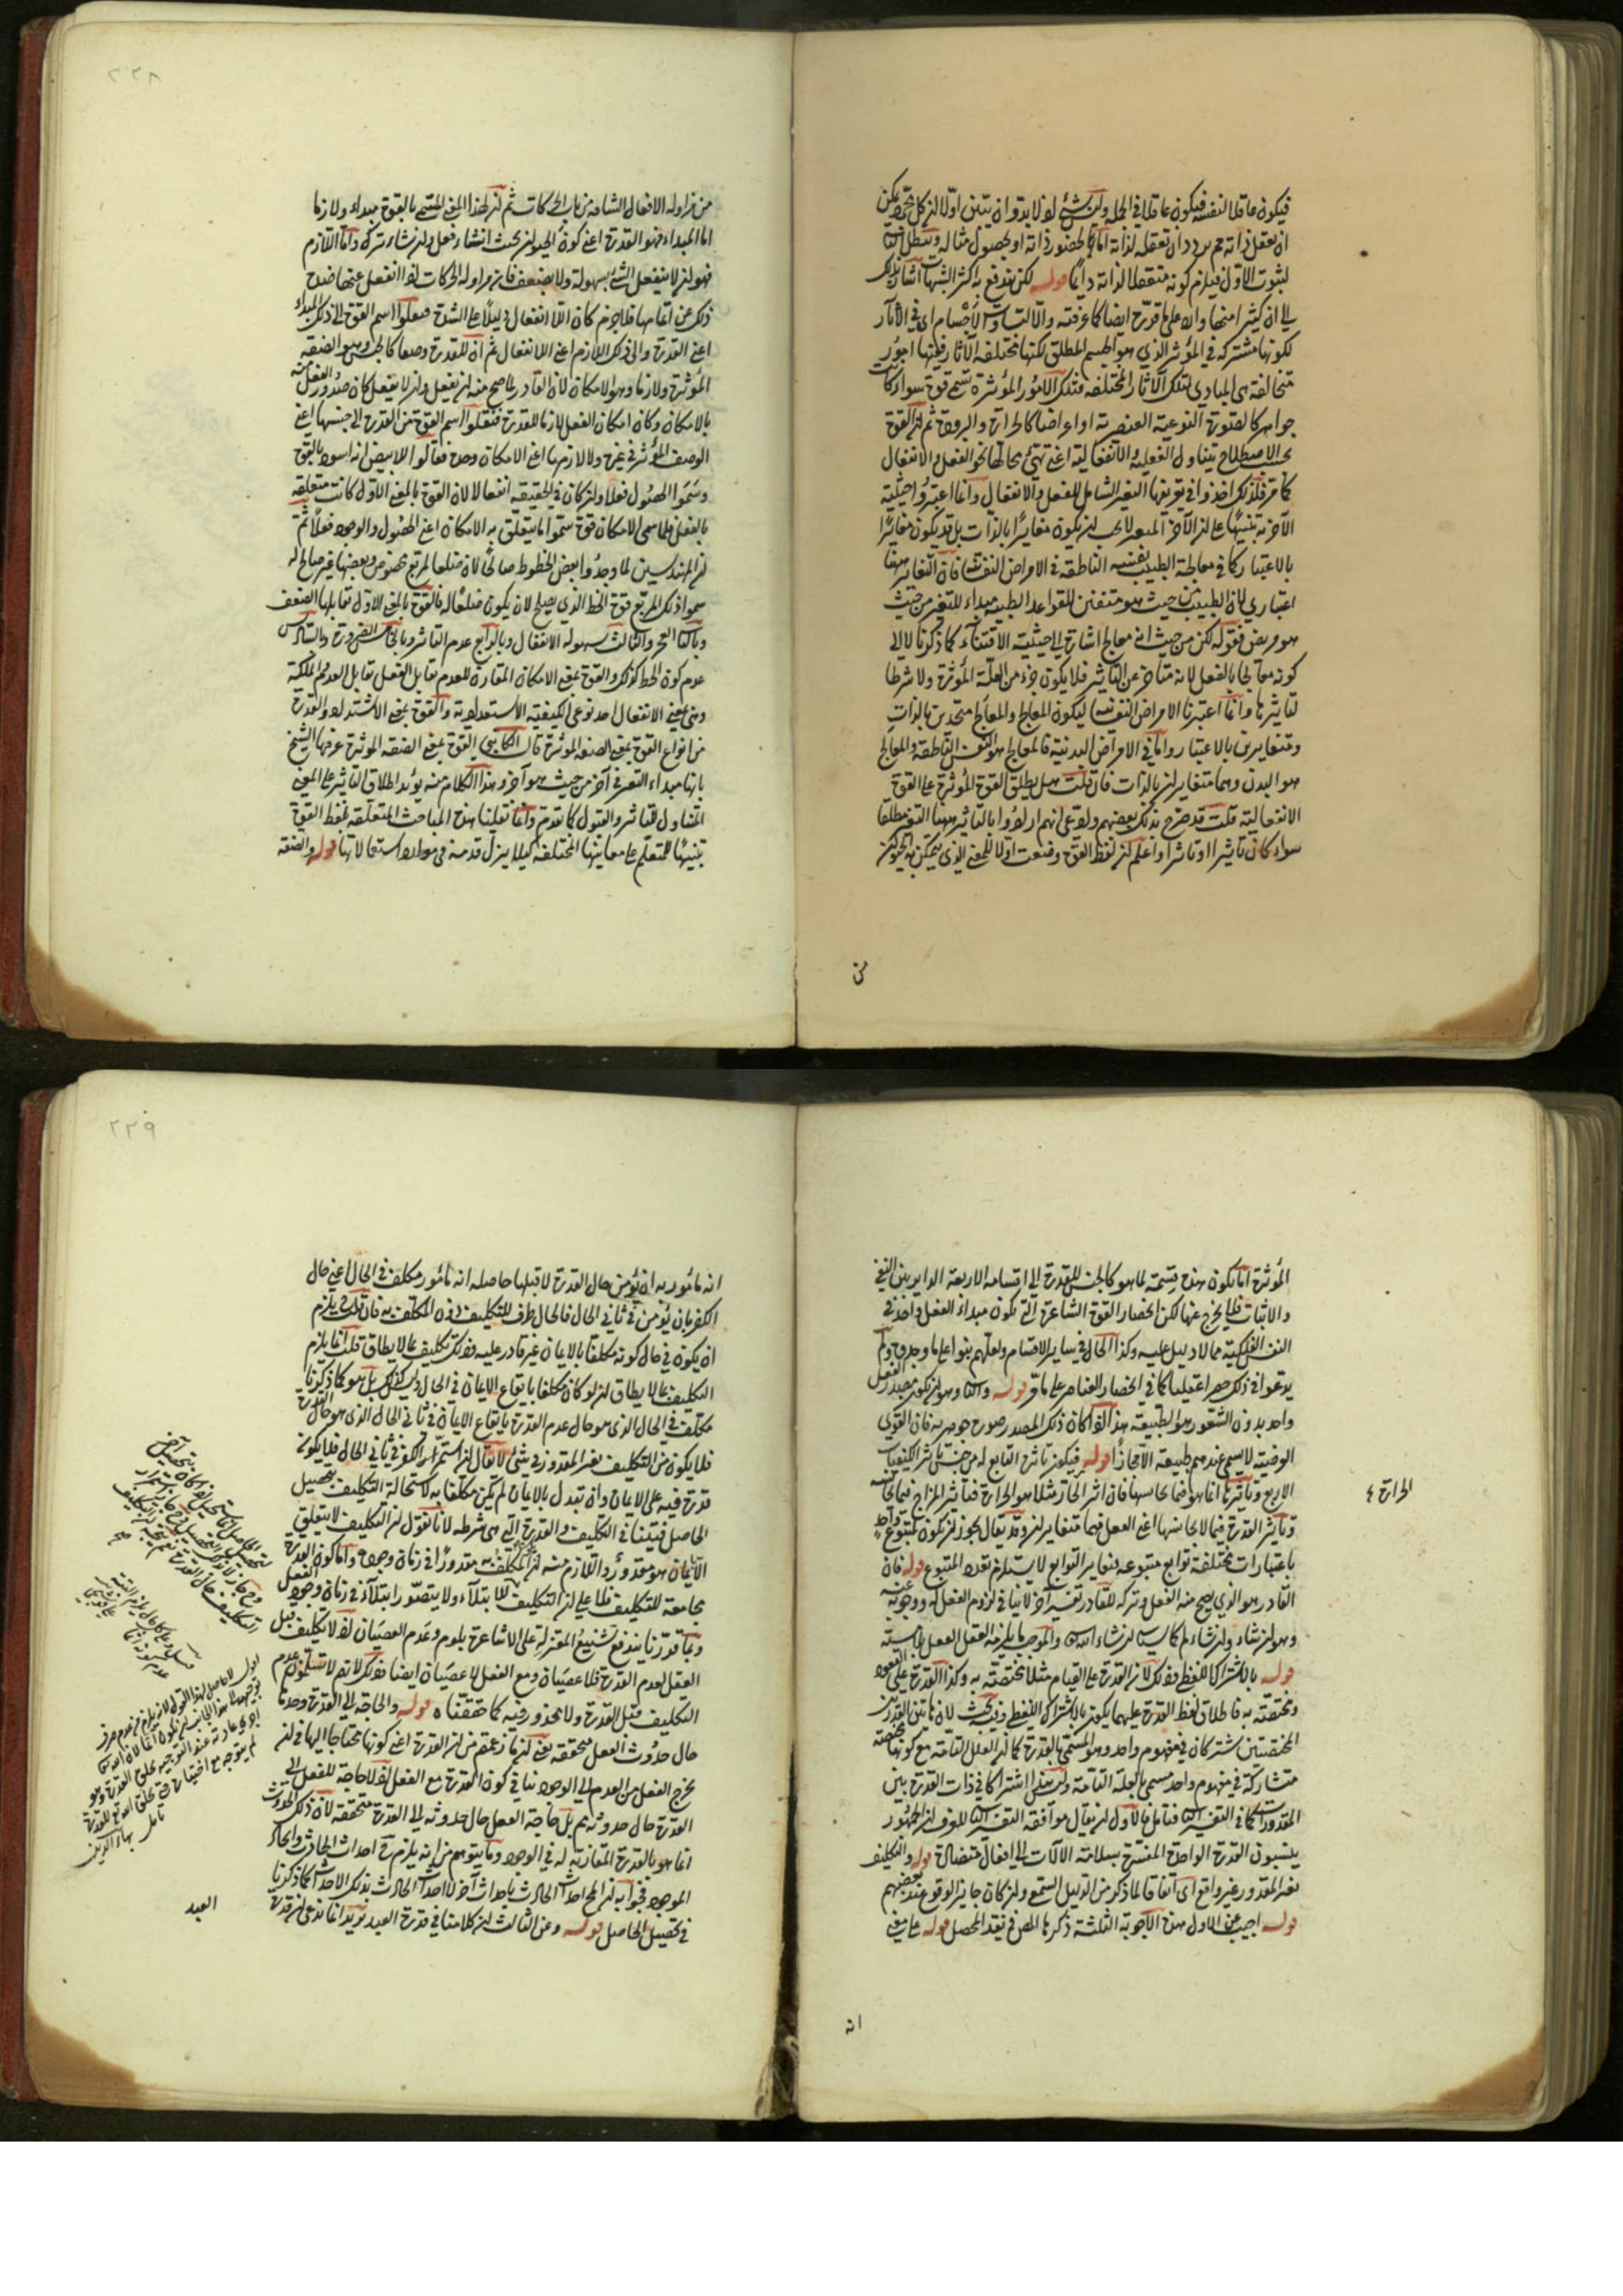 فيكون عاقلا لنفسه فيكون عاقلا في الجملة ولكن شئ لو لا بد وان يتبين اولا ان كل مجرد يمكن
ان يعقل ذاته ثم يردد ان تعقله لذاته اما لحضور ذاته او لحصول مثاله ويبطل الثاني
لثبوت الاول فيلزم كونه متعقلا لذاته دايما قوله لكن يندفع به اكثر الشبهات اشار بذلك
الى ان كثيرا منها وارد على ما قرره ايضا كما عرفته والا لتساوت الاجسام اى في الآثار
لكونها مشتركة في المؤثر الذي هو الجسم المطلق لكنها مختلفة الآثار فلها امور
متخالفة هى المبادى لتلك الآثار المختلفة فتلك الامور المؤثرة تسمى قوة سواء كانت
جواهر كالصورة النوعية العنصرية او اعراضا كالحرارة والبرودة ثم ان القوة
بحسب الاصطلاح يتناول الفعلية والانفعالية اعنى تهيئ محالها نحو الفعل والانفعال
كما مر فلذلك اخذوا في تعريفها التغير الشامل للفعل والانفعال وانما اعتبروا حيثية
الآخرية تنبيها على ان الآخر المعتبر لا يجب ان يكون مغايرا بالذات بل قد يكون مغايرا
بالاعتبار كما في معالجة الطبيب نفسه الناطقة في الامراض النفسانية فان التغاير ههنا
اعتباري لان الطبيب من حيث هو متقن للقواعد الطبية مبداء للتغير من حيث
هو مريض فقوله لكن من حيث انه معالج اشارة الى حيثية الاقتناء كما ذكرنا لا الى
كونه معالجا بالفعل لانه متاخر عن التاثير فلا يكون جزء من العلة المؤثرة ولا شرطا
لتاثيرها وانما اعتبرنا الامراض النفسية ليكون المعالج والمعالج متحدين بالذات
ومتغايرين بالاعتبار واما في الامراض البدنية فالمعالج هو النفس الناطقة والمعالج
هو البدن وهما متغايران بالذات فان قلت هل يطلق القوة المؤثرة على القوة
الانفعالية قلت قد صرح بذلك بعضهم ولا وعلى انهم ارادوا بالتاثير ههنا التغير مطلقا
سواء كان تاثيرا او تاثرا واعلم ان لفظ القوة وضعت اولا للمعنى الذي يتمكن به الحيوان
من
٢٢٨
من مزاولة الافعال الشاقة من باب الحركات ثم ان لهذا المعنى المسمى بالقوة مبداء ولازما
اما المبداء فهو القدرة اعنى كون الحيوان بحيث ان شاء فعل وان شاء ترك واما اللازم
فهو ان لا ينفعل الشئ بسهولة ولا يضعف فان مزاولة الحركات لو انفعل عنها صده
ذلك عن اتمامها فلا جرم كان اللا انفعال دليلا على الشدة فنقلوا اسم القوة الى ذلك المبداء
اعنى القدرة والى ذلك اللازم اعنى اللا انفعال ثم ان للقدرة وصفا كالجنس وهو الصفة
المؤثرة ولازما وهو الامكان لان القادر لما صح منه ان يفعل وان لا يفعل كان صدور الفعل منه
بالامكان وكان امكان الفعل لازما للقدرة فنقلوا اسم القوة من القدرة الى جنسها اعنى
الوصف المؤثر في غيره ولا لازمها اعنى الامكان وحده فقالوا للابيض انه اسود بالقوة
وسموا الحصول فعلا وان كان في الحقيقة انفعالا لان القوة بالمعنى الاول كانت متعلقة
بالفعل فلما سمى الامكان قوة سموا ما يتعلق به الامكان اعنى الحصول والوجود فعلا ثم
ان المهندسين لما وجدوا بعض الخطوط صالحا لان ضلعا لمربع مخصوص وبعضها غير صالح له
سموا ذلك المربع قوة الخط الذي يصلح لان يكون ضلعا له فالقوة بالمعنى الاول تقابلها الضعف
وبالثانى العجز والثالث سهولة الانفعال وبالرابع عدم التاثير وبالخامس الضرورة وبالسادس
عدم كون الخط كذلك والقوة بمعنى الامكان المقارن للعدم تقابل الفعل تقابل العدم والملكة
وهي بمعنى الانفعال احد نوعى الكيفية الاستعدادية والقوة بمعنى الاشتداد والقدرة
من انواع القوة بمعنى الصفة المؤثرة قال الكاتبي القوة بمعنى الصفة الموثرة عرفها الشيخ
بانها مبداء التغير في آخر من حيث هو آخر وهذا الكلام منه يؤيد اطلاق التاثير على المعنى
المتناول للتاثر والقبول كما تقدم وانما نقلنا هذه المباحث المتعلقة بلفظ القوة
تنبيها للمتعلم على معانيها المختلفة كيلا يزل قدمه في موارد استعمالاتها قوله والصفة
المؤثرة اما يكون هذه قسمة لما هو كالجنس للقدرة الى اقسامه الاربعة الدايرة بين النفى
والاثبات فلا يخرج عنها لكن انحصار القوة الشاعرة التى تكون مبداء الفعل واحد في
النفس الفلكية مما لا دليل عليه وكذا الحال في ساير الاقسام ولعلهم بنوا على ما وجدوه ولم
يدعوا في ذلك حصرا عقليا كما في انحصار العناصر على ما مر قوله والثانى وهو ان يكون مصدر الفعل
واحد بدون الشعور هو الطبيعة هذا اذا كان ذلك المصدر صورة جوهرية فان القوى
العرضية لا يسمى عندهم طبيعة الا مجازا قوله فيكون تاثيره التابع له من جنس تاثير الكيفيات
الاربع وتاثيرها انما هو فيما يجانسها فان اثر الحار مثلا هو الحرارة فتاثير المزاج فيما يجانسه
وتاثير القدرة فيما لا يجانسها اعنى الفعل فهما متغايران وقد يقال يجوز ان يكون لمتبوع واحد
باعتبارات مختلفة توابع متنوعة فتغاير التوابع لا يستلزم تعدد المتبوع قوله فان
القادر هو الذي يصح منه الفعل وتركه للقادر تفسير آخر لا ينافي لزوم الفعل له ووجوبه عنه
وهو ان شاء وان شاء لم
الحرارة ٤
قوله بالاشتراك اللفظي وذلك لان القدرة على القيام مثلا مختصة به وكذا القدرة على القعود
ومختصة به فاطلاق لفظ القدرة عليهما يكون بالاشتراك اللفظي وفيه بحث لان هاتين القدرتين
المختصتين تشتركان في مفهوم واحد وهو المسمى بالقدرة كما ان العلل التامة مع كونها مختصة
متشاركة في مفهوم واحد مسمى بالعلة التامة ولئن سلم اشتراكا في ذات القدرة بين
المقدورات كما في التفسير الثانى فتامل فالاول ان يقال موافقة التفسير الثانى للعرف ان الجمهور
ينسبون القدرة الواحدة المفسرة بسلامة الآلات الى افعال متضادة قوله والتكليف
بغير المقدور غير واقع اى اتفاقا لما ذكر من الدليل السمعى وان كان جايز الوقوع عند بعضهم
قوله اجيب عن الاول هذه الاجوبة الثلثة ذكرها المص في نقد المحصل قوله على معنى
انه
٢٢٩
انه مامور به ان يؤمن حال القدرة لا قبلها حاصله انه مامور مكلف في الحال اعنى حال
الكفر بان يؤمن في ثانى الحال فالحال ظرف للتكليف دون المكلف به فان قلت يلزم
ان يكون في حال كونه مكلفا بالايمان غير قادر عليه وذلك تكليف بما لا يطاق قلت انما يلزم
التكليف بما لا يطاق ان لو كان مكلفا بايقاع الايمان في الحال وليس كذلك بل هو كما ذكرنا
مكلف في الحال الذى هو حال عدم القدرة بايقاع الايمان في ثانى الحال الذى هو حال القدرة
فلا يكون من التكليف بغير المقدور في شئ لا يقال ان استمر الكفر في ثانى الحال فلا يكون
قدرة فيه على الايمان وان تبدل بالايمان لم يكن مكلفا به لاستحالة التكليف بتحصيل
الحاصل فيتنافى التكليف والقدرة التى هى شرطه لانا نقول ان التكليف لا يتعلق
الا بما هو مقدور واللازم منه ان المكلف به مقدورا في زمان وجوده واما كون القدرة
مجامعة للتكليف فلا على ان التكليف للابتلاء ولا يتصور ابتلاء في زمان وجود الفعل
وبما قررنا يندفع تشنيع المعتزلة على الاشاعرة بلزوم عدم العصيان لو لا تكليف قبل
الفعل لعدم القدرة فلا عصيان ومع الفعل لا عصيان ايضا وذلك لانهم لا
التكليف قبل القدرة ولا محذور فيه كما حققناه قوله والحاجة الى القدرة وحدها
حال حدوث الفعل متحققة يعنى ان ما زعمتم من ان القدرة اعنى كونها محتاجا اليها في ان
يخرج الفعل من العدم الى الوجود ينافي كون القدرة مع الفعل لو لا حاجة للفعل الى
القدرة حال حدوثه بل حاجة الفعل حال حدوثه الى القدرة متحققة لان ذلك الحدوث
انما هو بالقدرة المقارنة له في الوجود وما يتوهم من انه يلزم ح احداث الحادث وايجاد
الموجود فجوابه ان المح احداث الحادث باحداث آخر لا احداث الحادث بذلك الاحداث كما ذكرنا
في تحصيل الحاصل قوله وعن الثالث ان كلامنا في قدرة العبد يريد انما ندعى ان قدرة
العبد
تامل بهاء الدين